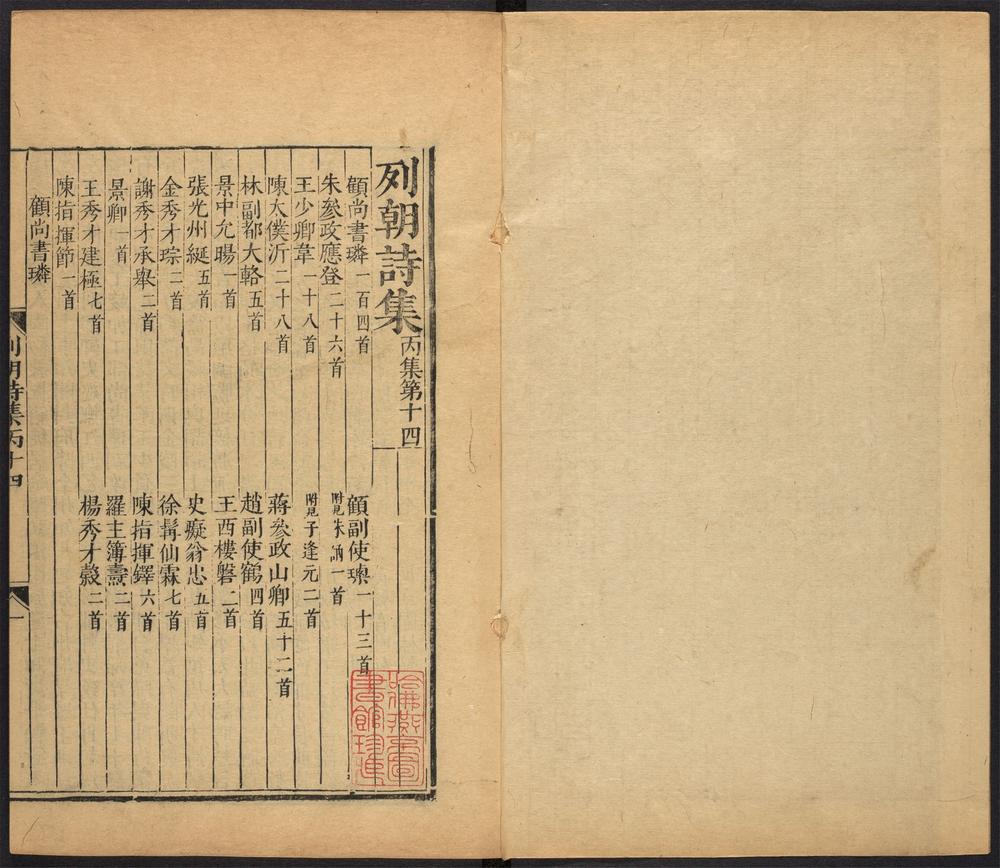 列朝詩集丙集第十四
顧尚書璘一百四首
顧副使瑮一十三首
朱叅政應登二十六首
附見朱訥一首
王少卿韋一十八首
附見子逢元二首
陳太僕沂二十八首
蔣叅政山卿五十二首
林副都大輅五首
趙副使鶴四首
景中允暘一首
王西樓磐二首
張光州綖五首
史癡翁忠五首
金秀才琮二首
徐髯仙霖七首
謝秀才承舉二首
陳指揮鐸六首
景卿一首
羅主簿燾二首
王秀才建極七首
楊秀才縠二首
陳指揮節一首
顧尚書璘
列朝詩集丙十四
一
哈佛燕京圖
書館珍